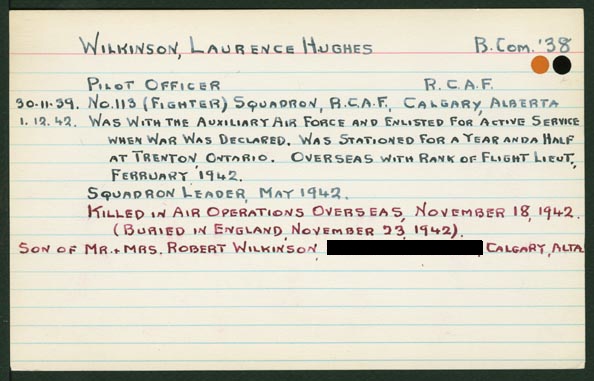 WILKINSON, LAURENCE HUGHES B. COM. '38
PILOT OFFICER R.C.A.F.
30-11-39. NO. 113 (FIGHTER) SQUADRON, R.C.A.F., CALGARY, ALBERTA
1.12.42. WAS WITH THE AUXILIARY AIR FORCE AND ENLISTED FOR ACTIVE SERVICE
WHEN WAR WAS DECLARED. WAS STATIONED FOR A YEAR AND A HALF
AT TRENTON, ONTARIO. OVERSEAS WITH RANK OF FLIGHT LIEUT.,
FERRUARY, 1942.
SQUADRON LEADER, MAY 1942.
KILLED IN AIR OPERATIONS OVERSEAS, NOVEMBER 18, 1942.
(BURIED IN ENGLAND, NOVEMBER 23, 1942).
SON OF MR. + MRS. ROBERT WILKINSON, , CALGARY, ALTA